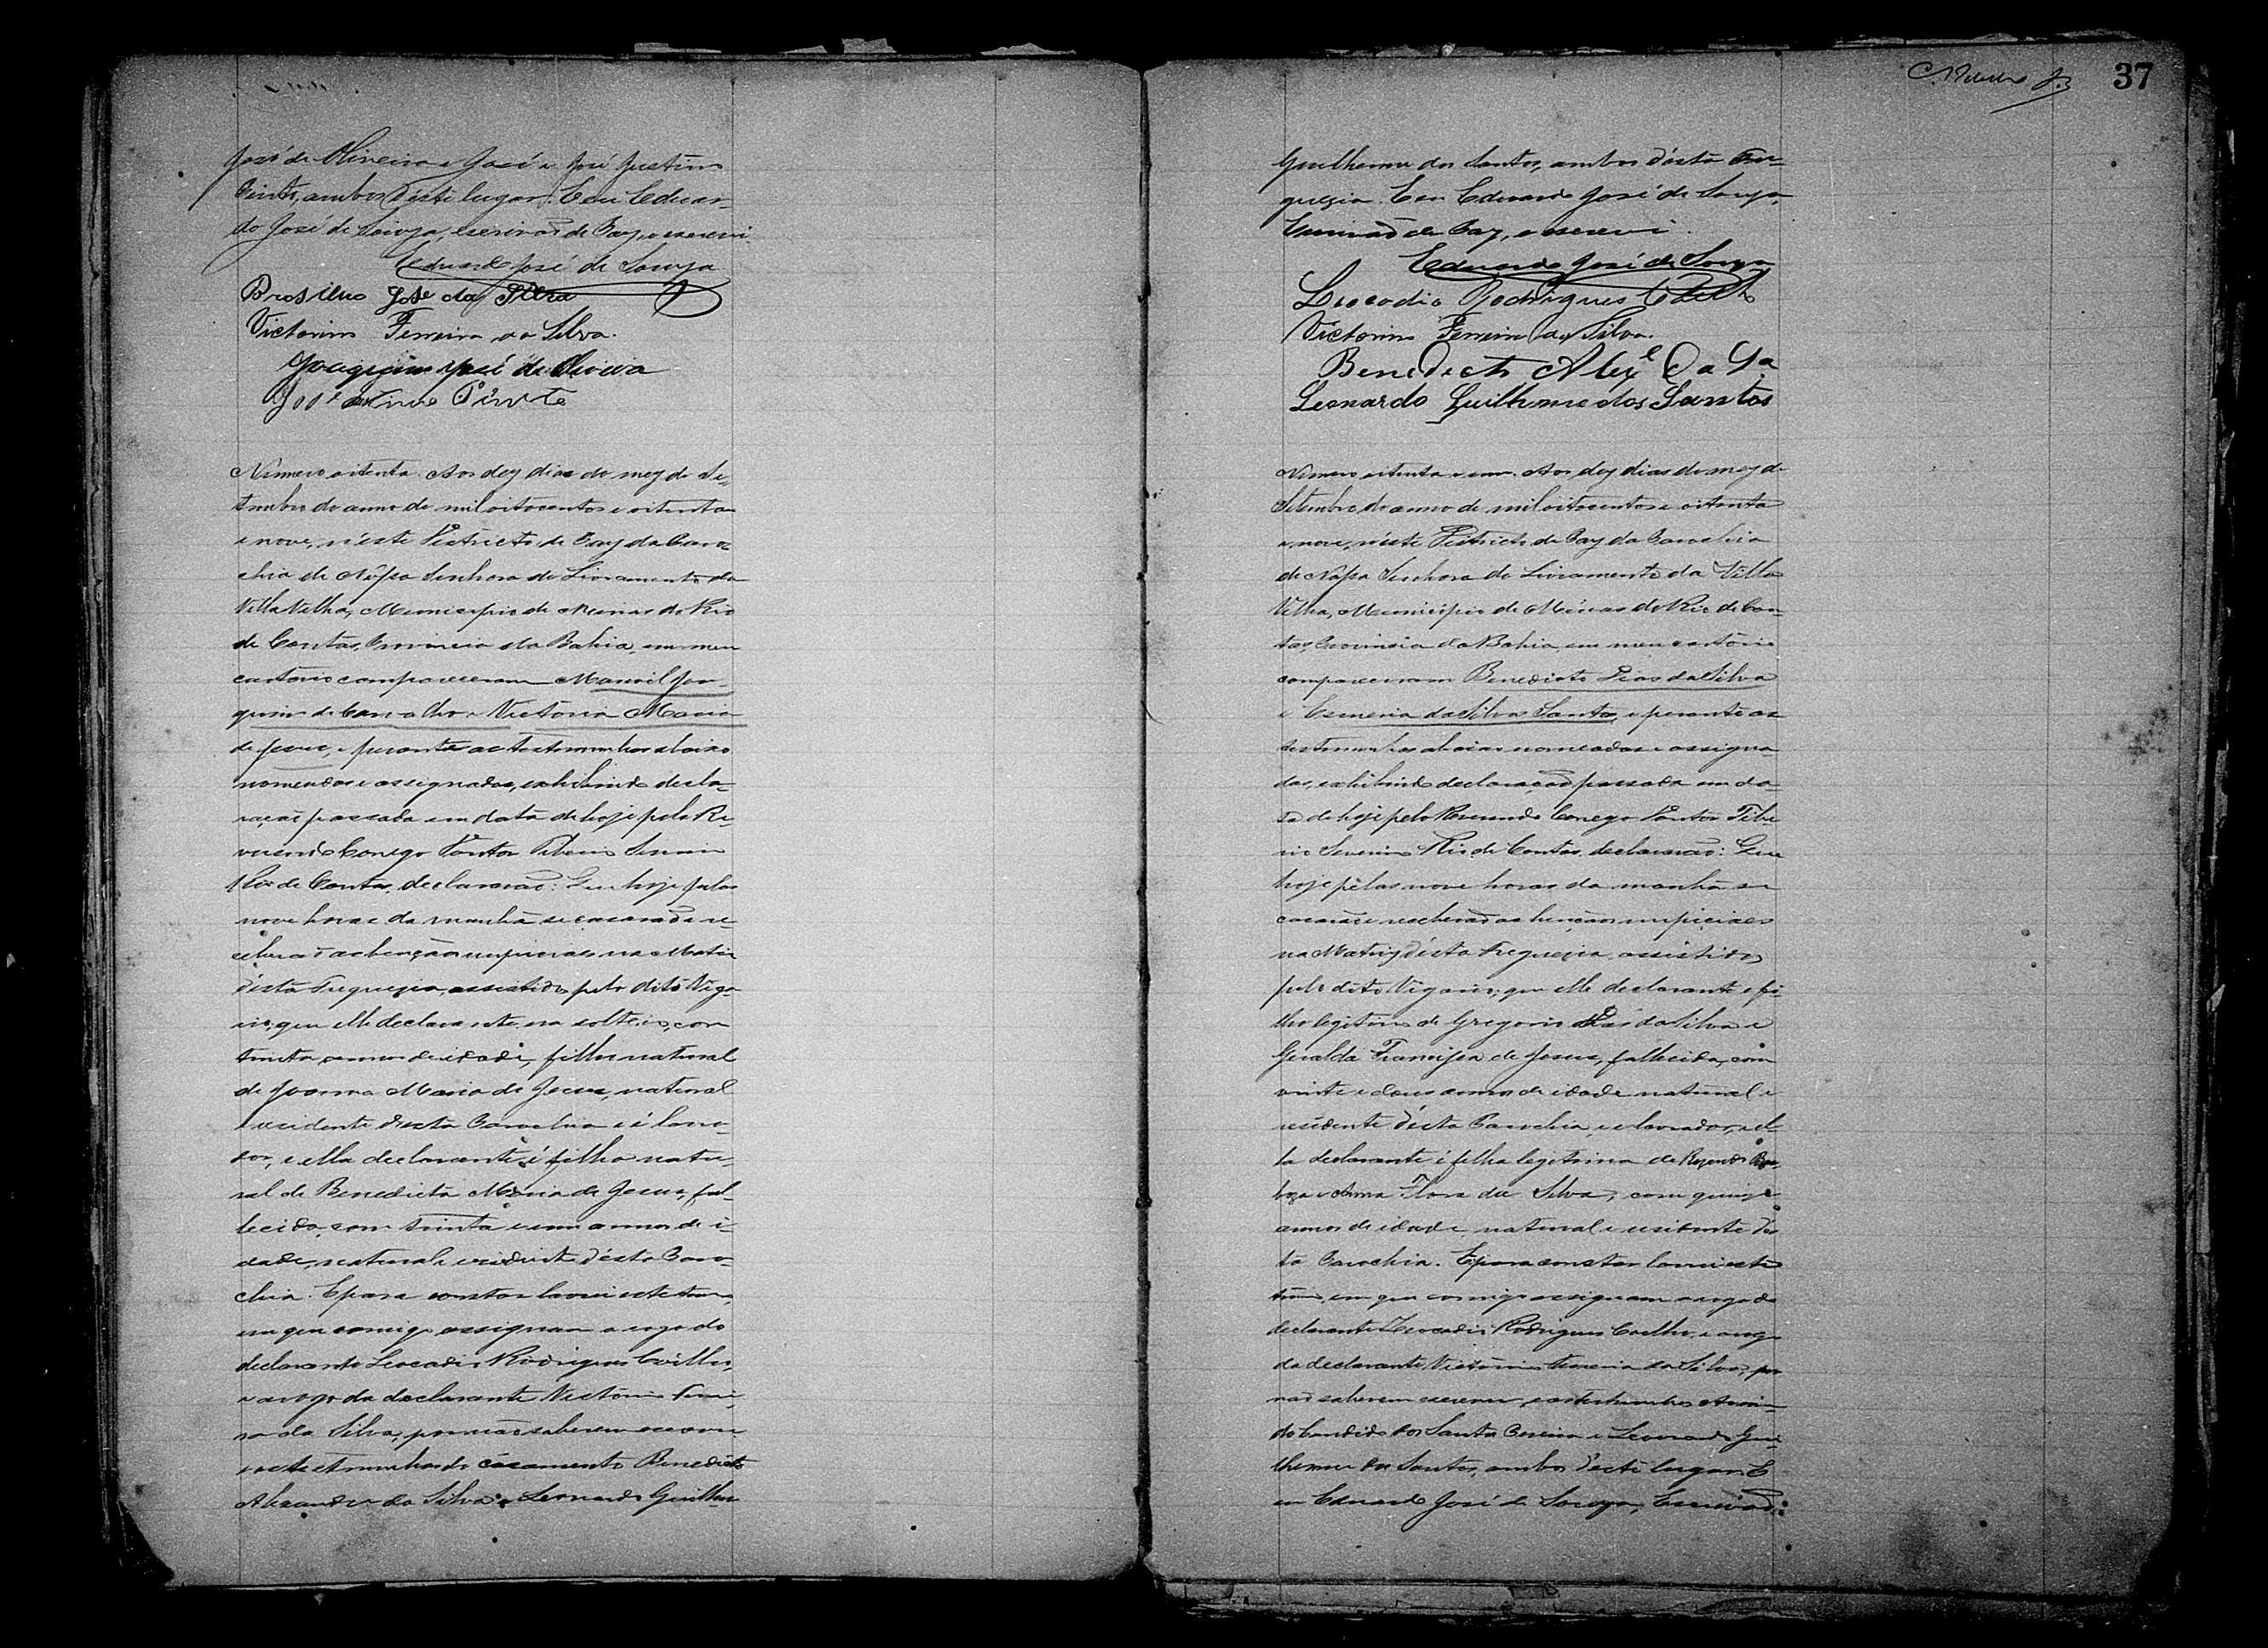 José de Oliveira e José e José Justino
Pinto, ambos d'este lugar. E eu Eduar-
do José de Souza, escrivão de Paz, o escrevi.
Eduardo José de Souza
Brosilino José da Silva
Victorino Ferreira da Silva.
Joaquim José de Oliveira
José Pinto
Número oitenta. Aos dez dias do mez de Se-
tembro do anno de mil oitocentos e oitenta
e nove, n'este Districto de Paz da Paro-
chia de Nossa Senhora do Livramento da
Villa Velha, Municipio de Minas do Rio
de Contas, Provincia da Bahia, em meu
cartorio compareceram Manoel Joa-
quim de Carvalho e Victoria Maria
de Jesus, e perante as testemunhas abaixo
nomeadas e assignadas, exhibindo decla-
ração passada em data de hoje pelo Re-
verendo Conego Doutor Tiberio Severino
Rio de Contas, declararão: Que hoje pelas
nove horas da manhã se casarão e re-
ceberão as bençãos nupciaes na Matriz
d'esta Freguezia, assistido pelo dito Viga-
rio; que elle declarante era solteiro, com
trinta annos de idade, filho natural
de Joanna Maria de Jesus, natural
e residente d'esta Parochia e é lavra-
dor, e ella declarante é filha natu-
ral de Benedicta Maria de Jesus, fal-
lecida, com trinta e um annos de i-
dade, natural e residente d'esta Paro-
chia. E para constar lavrei este termo,
em que comigo assignam a rogo do
declarante Leocadio Rodrigues Coelho,
e a rogo da declarante Victorino Ferrei-
ra da Silva, por não saberem escrever
e as testemunhas do casamento Benedicto
Alexandre da Silva e Leonardo Guilher-
37
Guilherme dos Santos, ambos d'esta Fre-
guezia. E eu Eduardo José de Souza,
Escrivão de Paz, o escrevi.
Eduardo José de Souza
Leocadio Rodrigues Coelho
Victorino Ferreira da Silva.
Benedicto Alex.e Da Sa
Leonardo Guilherme dos Santos
Número oitenta e um. Aos dez dias do mez de
Setembro do anno de mil oitocentos e oitenta
e nove, n'este Districto de Paz da Parochia
de Nossa Senhora do Livramento da Villa
Velha, Municipio de Minas do Rio de Con-
tas, Provincia da Bahia, em meu cartorio
compareceram Benedicto Dias da Silva
e Esmeria da Silva Santos, e perante as
testemunhas abaixo nomeadas e assigna-
das, exhibindo declaração passada em da-
ta de hoje pelo Reverendo Conego Doutor Tibe
rio Severino Rio de Contas, declararão: Que
hoje pelas nove horas da manhã se
casarão e receberão as bençãos nupciaes
na Matriz d'esta Freguezia, assistidos
pelo dito Vigario; que elle declarante é fi-
lho legitimo de Gregorio Dias da Silva e
Geralda Francisca de Jesus, fallecida, com
vinte e dous annos de idade natural e
residente d'esta Parochia, e é lavrador, e el-
la declarante é filha legitima de Rozendo
e Anna Flora da Silva, com quinze
annos de idade, natural e residente d'es
ta Parochia. E para constar lavrei este
termo, em que comigo assignam a rogo do
declarante Leocadio Rodrigues Coelho, e a rogo
da declarante Victorino Ferreira da Silva, por
não saberem escrever, e as testemunhas
do Candido dos Santos Pereira e Leonardo Gui-
lherme dos Santos, ambos d'este lugar. E
eu Eduardo José de Souza, Escrivão